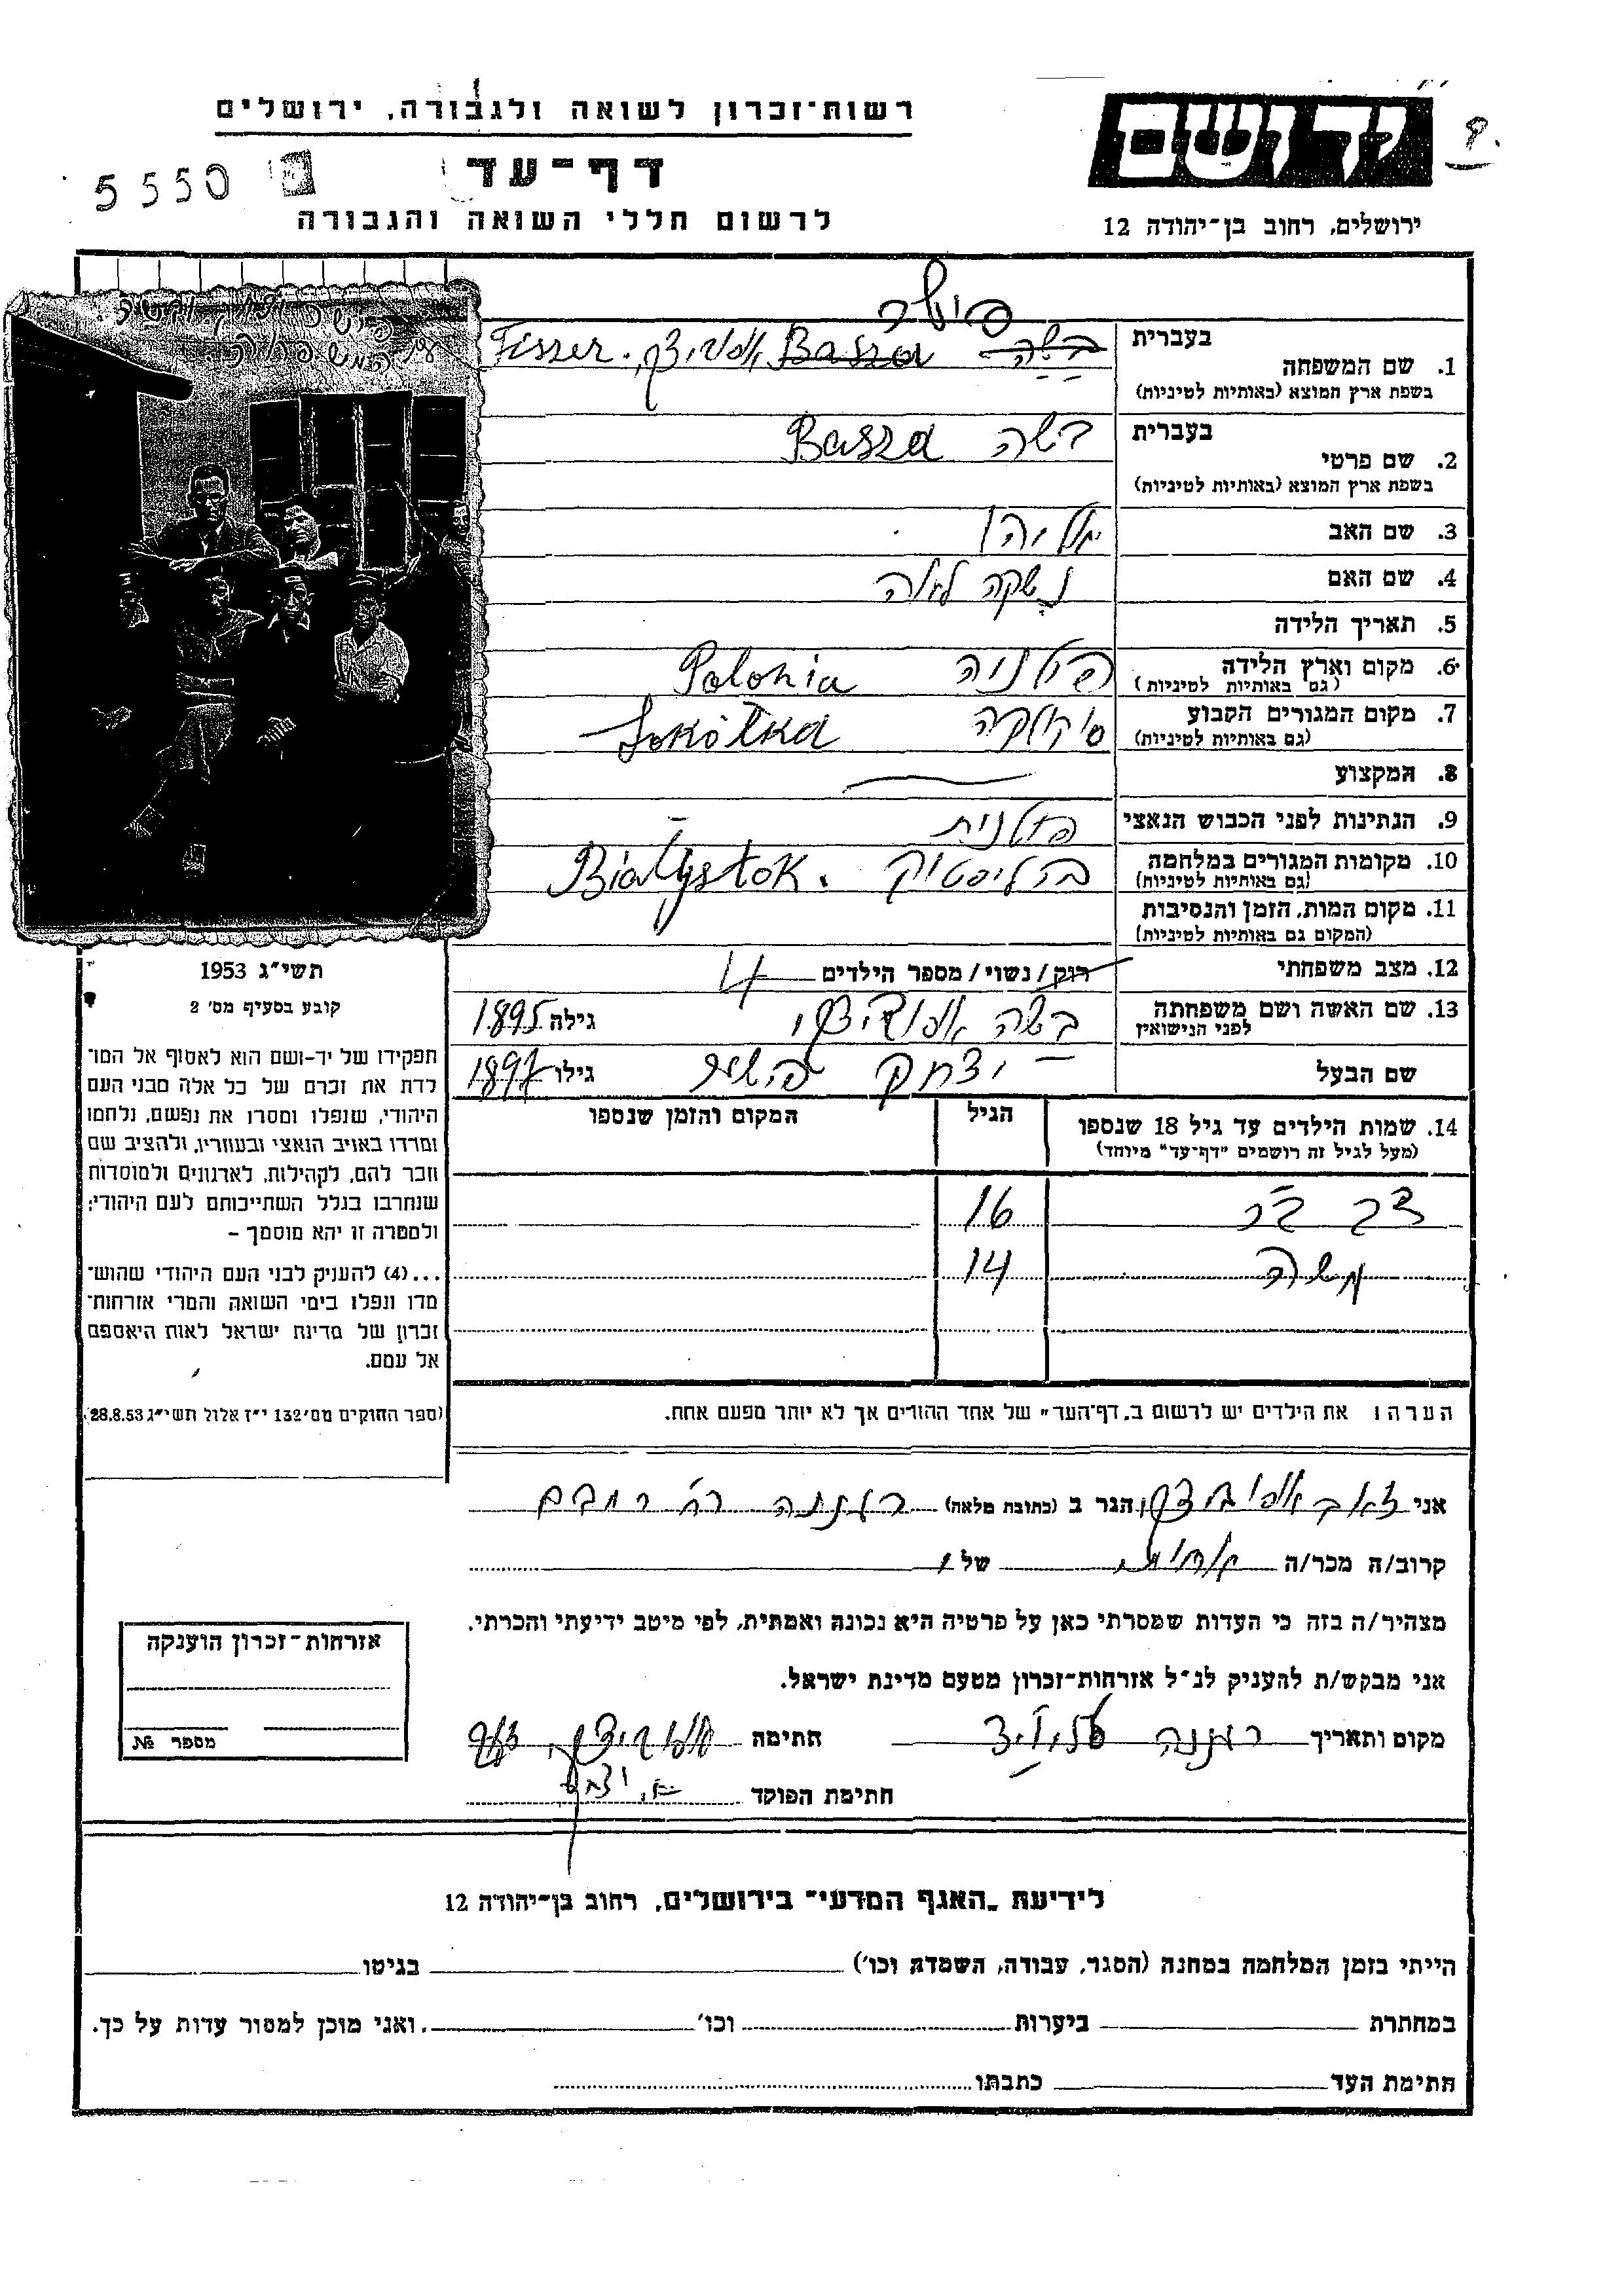 רשות־זכרון לשואה ולגבורה, ירושלים
ידושם
5550
דף־עד
לרשום חללי השואה והגבורה
ירושלים, רחוב בן־יהודה 12
פישר
בעברית
1. שם המשפחה
בשה Basza Fisser.
בשפת ארץ המוצא (באותיות לטיניות)
בעברית
2. שם פרטי
בשה Basza
בשפת ארץ המוצא (באותיות לטיניות)
3. שם האב אליהו
4. שם האם נשקה לאה
5. תאריך הלידה
6. מקום וארץ הלידה פולניה Polonia
(גם באותיות לטיניות)
7. מקום המגורים הקבוע סוקולקה Sokółka
(גם באותיות לטיניות)
8. המקצוע
9. הנתינות לפני הכבוש הנאצי פולנית
10. מקומות המגורים במלחמה ביאליסטוק Białystok.
(גם באותיות לטיניות)
11. מקום המות, הזמן והנסיבות
(המקום גם באותיות לטיניות)
12. מצב משפחתי רוק/נשוי/מספר הילדים 4
13. שם האשה ושם משפחתה בשה גילה 1895
לפני הנישואין
שם הבעל יצחק פישר גילו 1897
14. שמות הילדים עד גיל 18 שנספו הגיל המקום והזמן שנספו
(מעל לגיל זה רושמים "דף־עד" מיוחד)
דב בר 16
משה 14
תשי"ג 1953
קובע בסעיף מס' 2
תפקידו של יד-ושם הוא לאסוף אל המו־
לדת את זכרם של כל אלה מבני העם
היהודי, שנפלו ומסרו את נפשם, נלחמו
ומרדו באויב הנאצי ובעוזריו, ולהציב שם
וזכר להם, לקהילות, לארגונים ולמוסדות
שנחרבו בגלל השתייכותם לעם היהודי;
ולמטרה זו יהא מוסמך –
...(4) להעניק לבני העם היהודי שהוש־
מדו ונפלו בימי השואה והמרי אזרחות־
זכרון של מדינת ישראל לאות היאספם
אל עמם.
(ספר החוקים מס' 132 י"ז אלול תשי"ג 28.8.53)
הערה: את הילדים יש לרשום ב,,דף־העד" של אחד ההורים אך לא יותר מפעם אחת.
אני זאב הגר ב (כתובת מלאה) רעננה
קרוב/ה מכר/ה של
מצהיר/ה בזה כי העדות שמסרתי כאן על פרטיה היא נכונה ואמתית, לפי מיטב ידיעתי והכרתי.
אני מבקש/ת להעניק לנ"ל אזרחות־זכרון מטעם מדינת ישראל.
מקום ותאריך רעננה חתימה
חתימת הפוקד
אזרחות־זכרון הוענקה
מספר №
לידיעת ,,האגף המדעי" בירושלים, רחוב בן־יהודה 12
הייתי בזמן המלחמה במחנה (הסגר, עבודה, השמדה וכו') בגיטו
במחתרת ביערות וכו' ,ואני מוכן למסור עדות על כך.
חתימת העד כתבתו